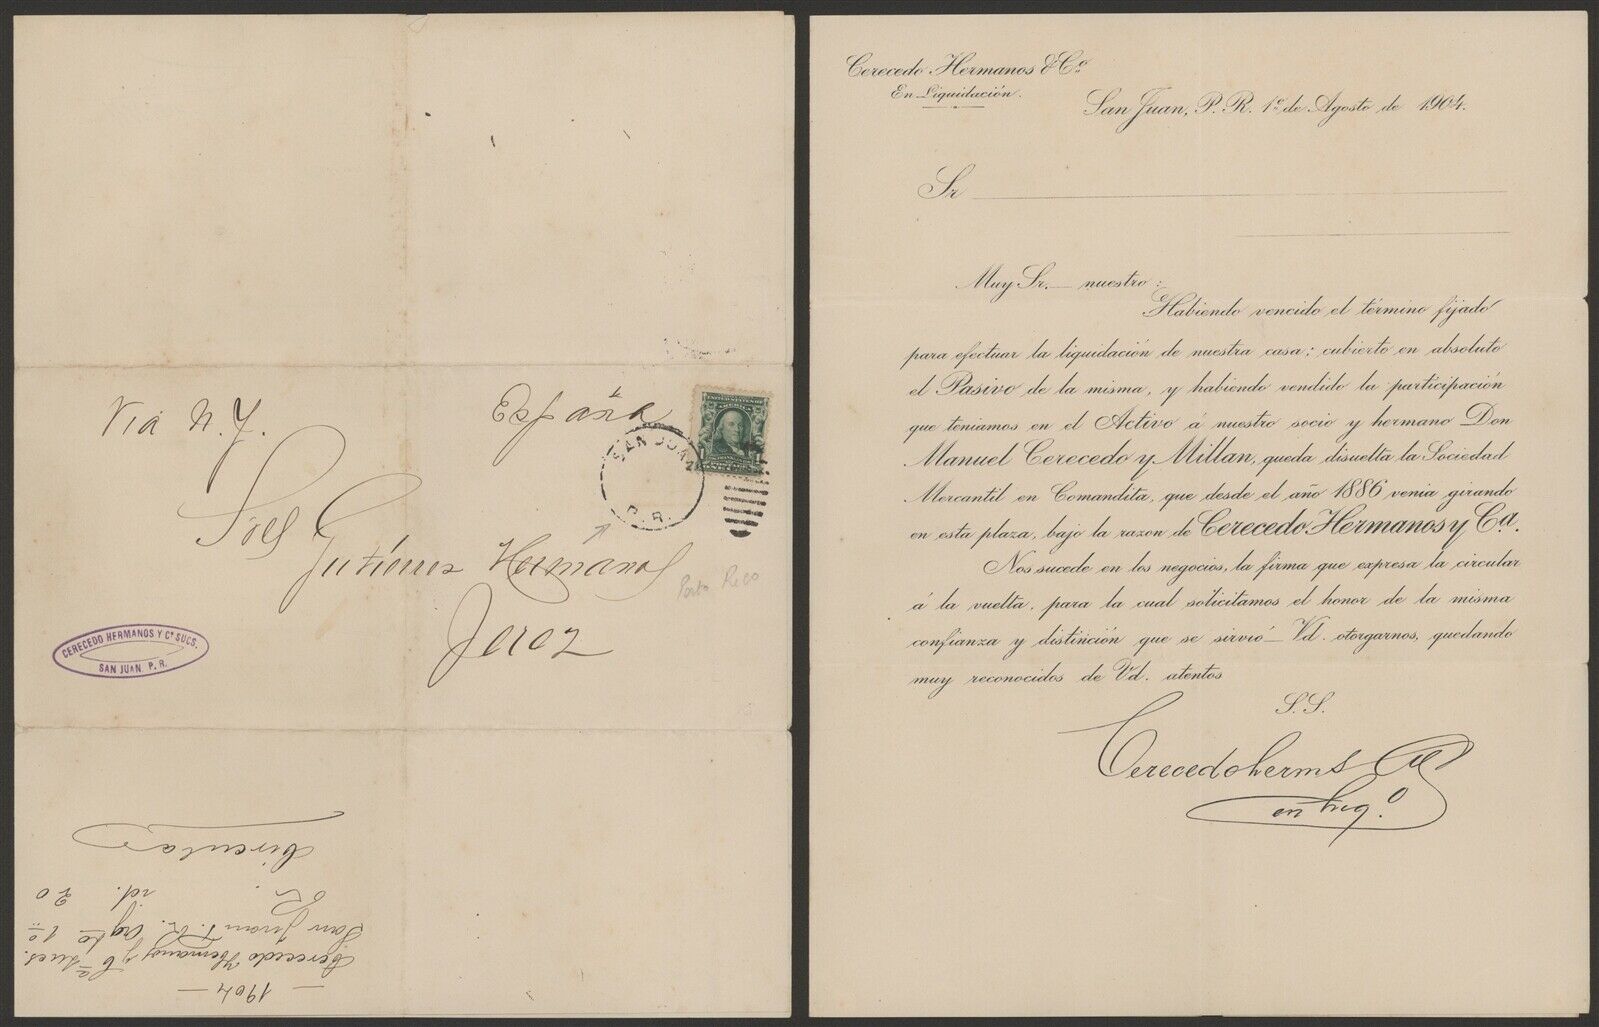 Via N.Y.
España
UNITED STATES OF
AMERICA
SAN JUAN
P. R.
Sres
Gutiérrez Hermanos
Porto Rico
Jerez
CERECEDO HERMANOS Y Cª SUCS.
SAN JUAN P. R.
— 1904 —
Cerecedo Hermanos y Cª Sucs.
San Juan P. R. Agto 1º
R. id. 20
Circular
Cerecedo Hermanos & Cº
En Liquidación.
San Juan, P. R. 1º de Agosto de 1904.
Sr
Muy Sr. nuestro:
Habiendo vencido el término fijado
para efectuar la liquidación de nuestra casa; cubierto en absoluto
el Pasivo de la misma, y habiendo vendido la participación
que teniamos en el Activo á nuestro socio y hermano Don
Manuel Cerecedo y Millan, queda disuelta la Sociedad
Mercantil en Comandita, que desde el año 1886 venia girando
en esta plaza, bajo la razon de Cerecedo, Hermanos y Cª.
Nos sucede en los negocios, la firma que expresa la circular
á la vuelta, para la cual solicitamos el honor de la misma
confianza y distinción que se sirvió Vd. otorgarnos, quedando
muy reconocidos de Vd. atentos
S.S.
Cerecedo herms Cª
en liqº.